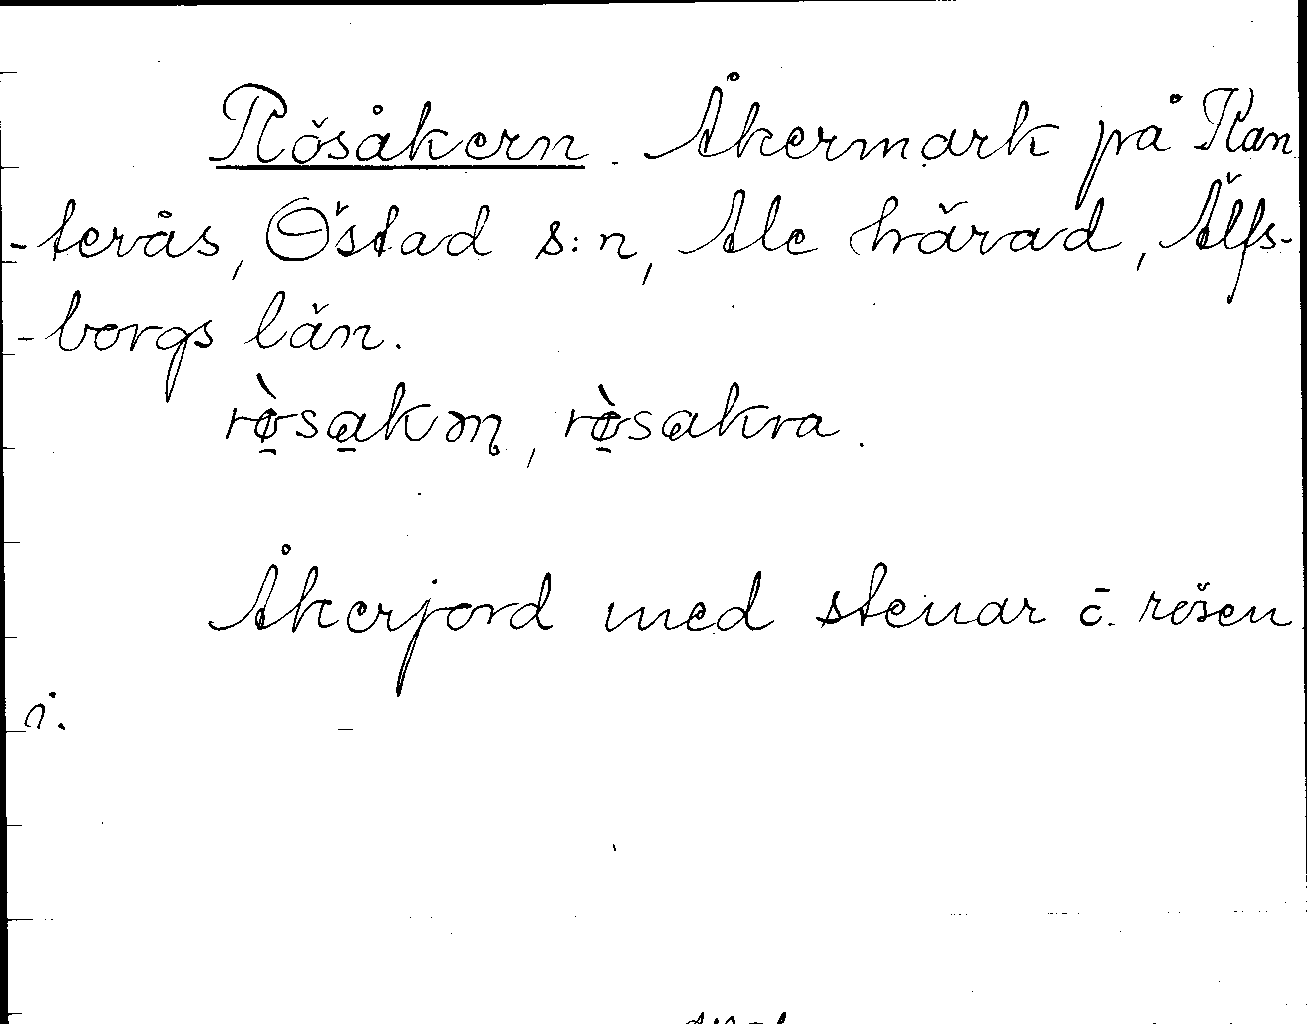 Rösåkern. Åkermark på Ran
-terås, Östad s:n, Ale härad, Älfs-
-borgs län.
rø̠̀sa̠km̥, rø̠̀sakra.
Åkerjord med stenar o. rösen
i.